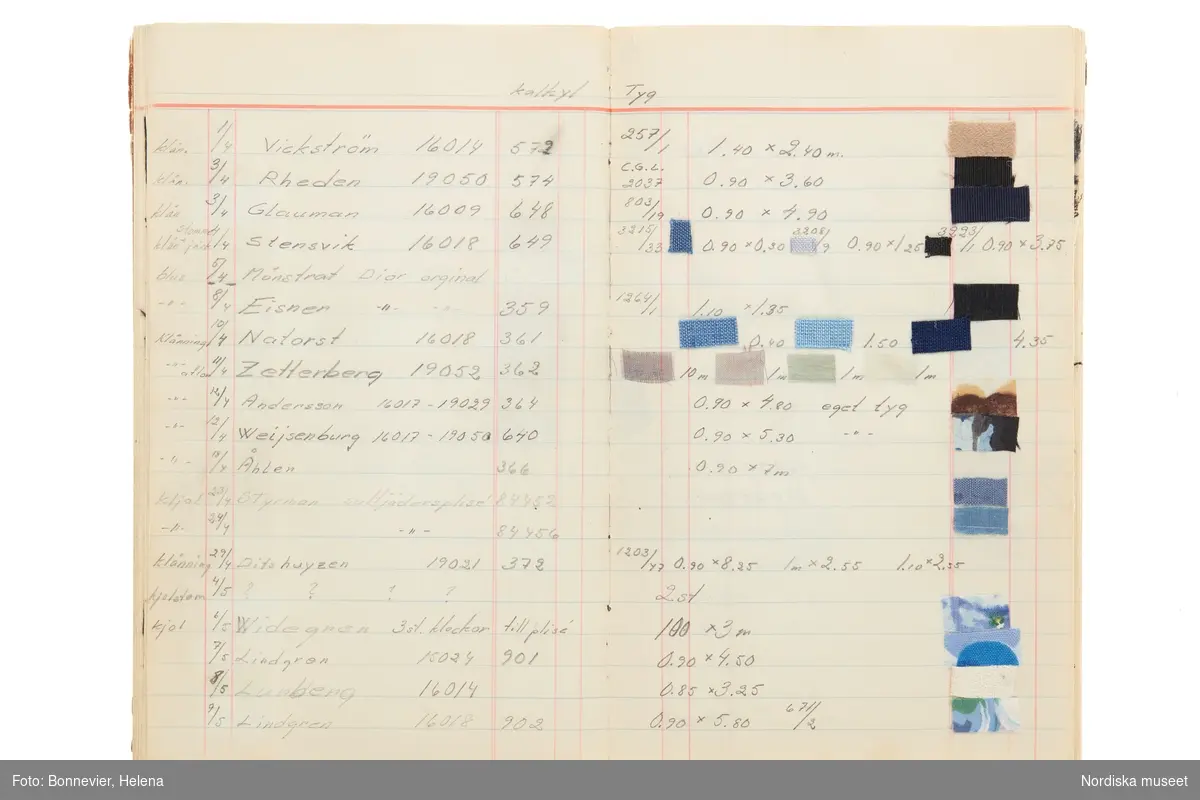 kalkyl Tyg
klän. 1/4 Vickström 16014 572 257/1 1.40 × 2.40 m.
klän. 3/4 Rheden 19050 574 C.G.L. 2037 0.90 × 3.60
klän 3/4 Glauman 16009 648 803/19 0.90 × 4.90
klän jack /4 Stensvik 16018 649 3215/33 0.90 × 0.30 3208/9 0.90 × 1.25 3223/1 0.90 × 3.75
blus 5/4 Mönstrat Dior orginal
-"- 8/4 Eisner -"- -"- 359 1264/1 1.10 × 1.35
klänning 10/4 Natorst 16018 361 0.40 1.50 4.35
-"- 11/4 Zetterberg 19052 362 10 m 1 m 1 m 1 m
-"- 12/4 Andersson 16017-19029 364 0.90 × 4.80 eget tyg
-"- 12/4 Weijsenburg 16017-19050 640 0.90 × 5.30 -"-
-"- 18/4 Åhlen 366 0.90 × 7 m
kjol 23/4 Styrman solfjädersplisé 84452
-"- 24/4 -"- 84456
klänning 29/4 Ditshuyzen 19021 372 1203/47 0.90 × 8.25 1 m × 2.55 1.10 × 2.55
4/5 ? ? ? ? 2 st
kjol 6/5 Widegren 3 st. klockor till plisé 100 × 3 m
7/5 Lindgren 15024 901 0.90 × 4.50
8/5 Lunberg 16014 0.85 × 3.25
9/5 Lindgren 16018 902 0.90 × 5.80 671/2
Foto: Bonnevier, Helena
Nordiska museet